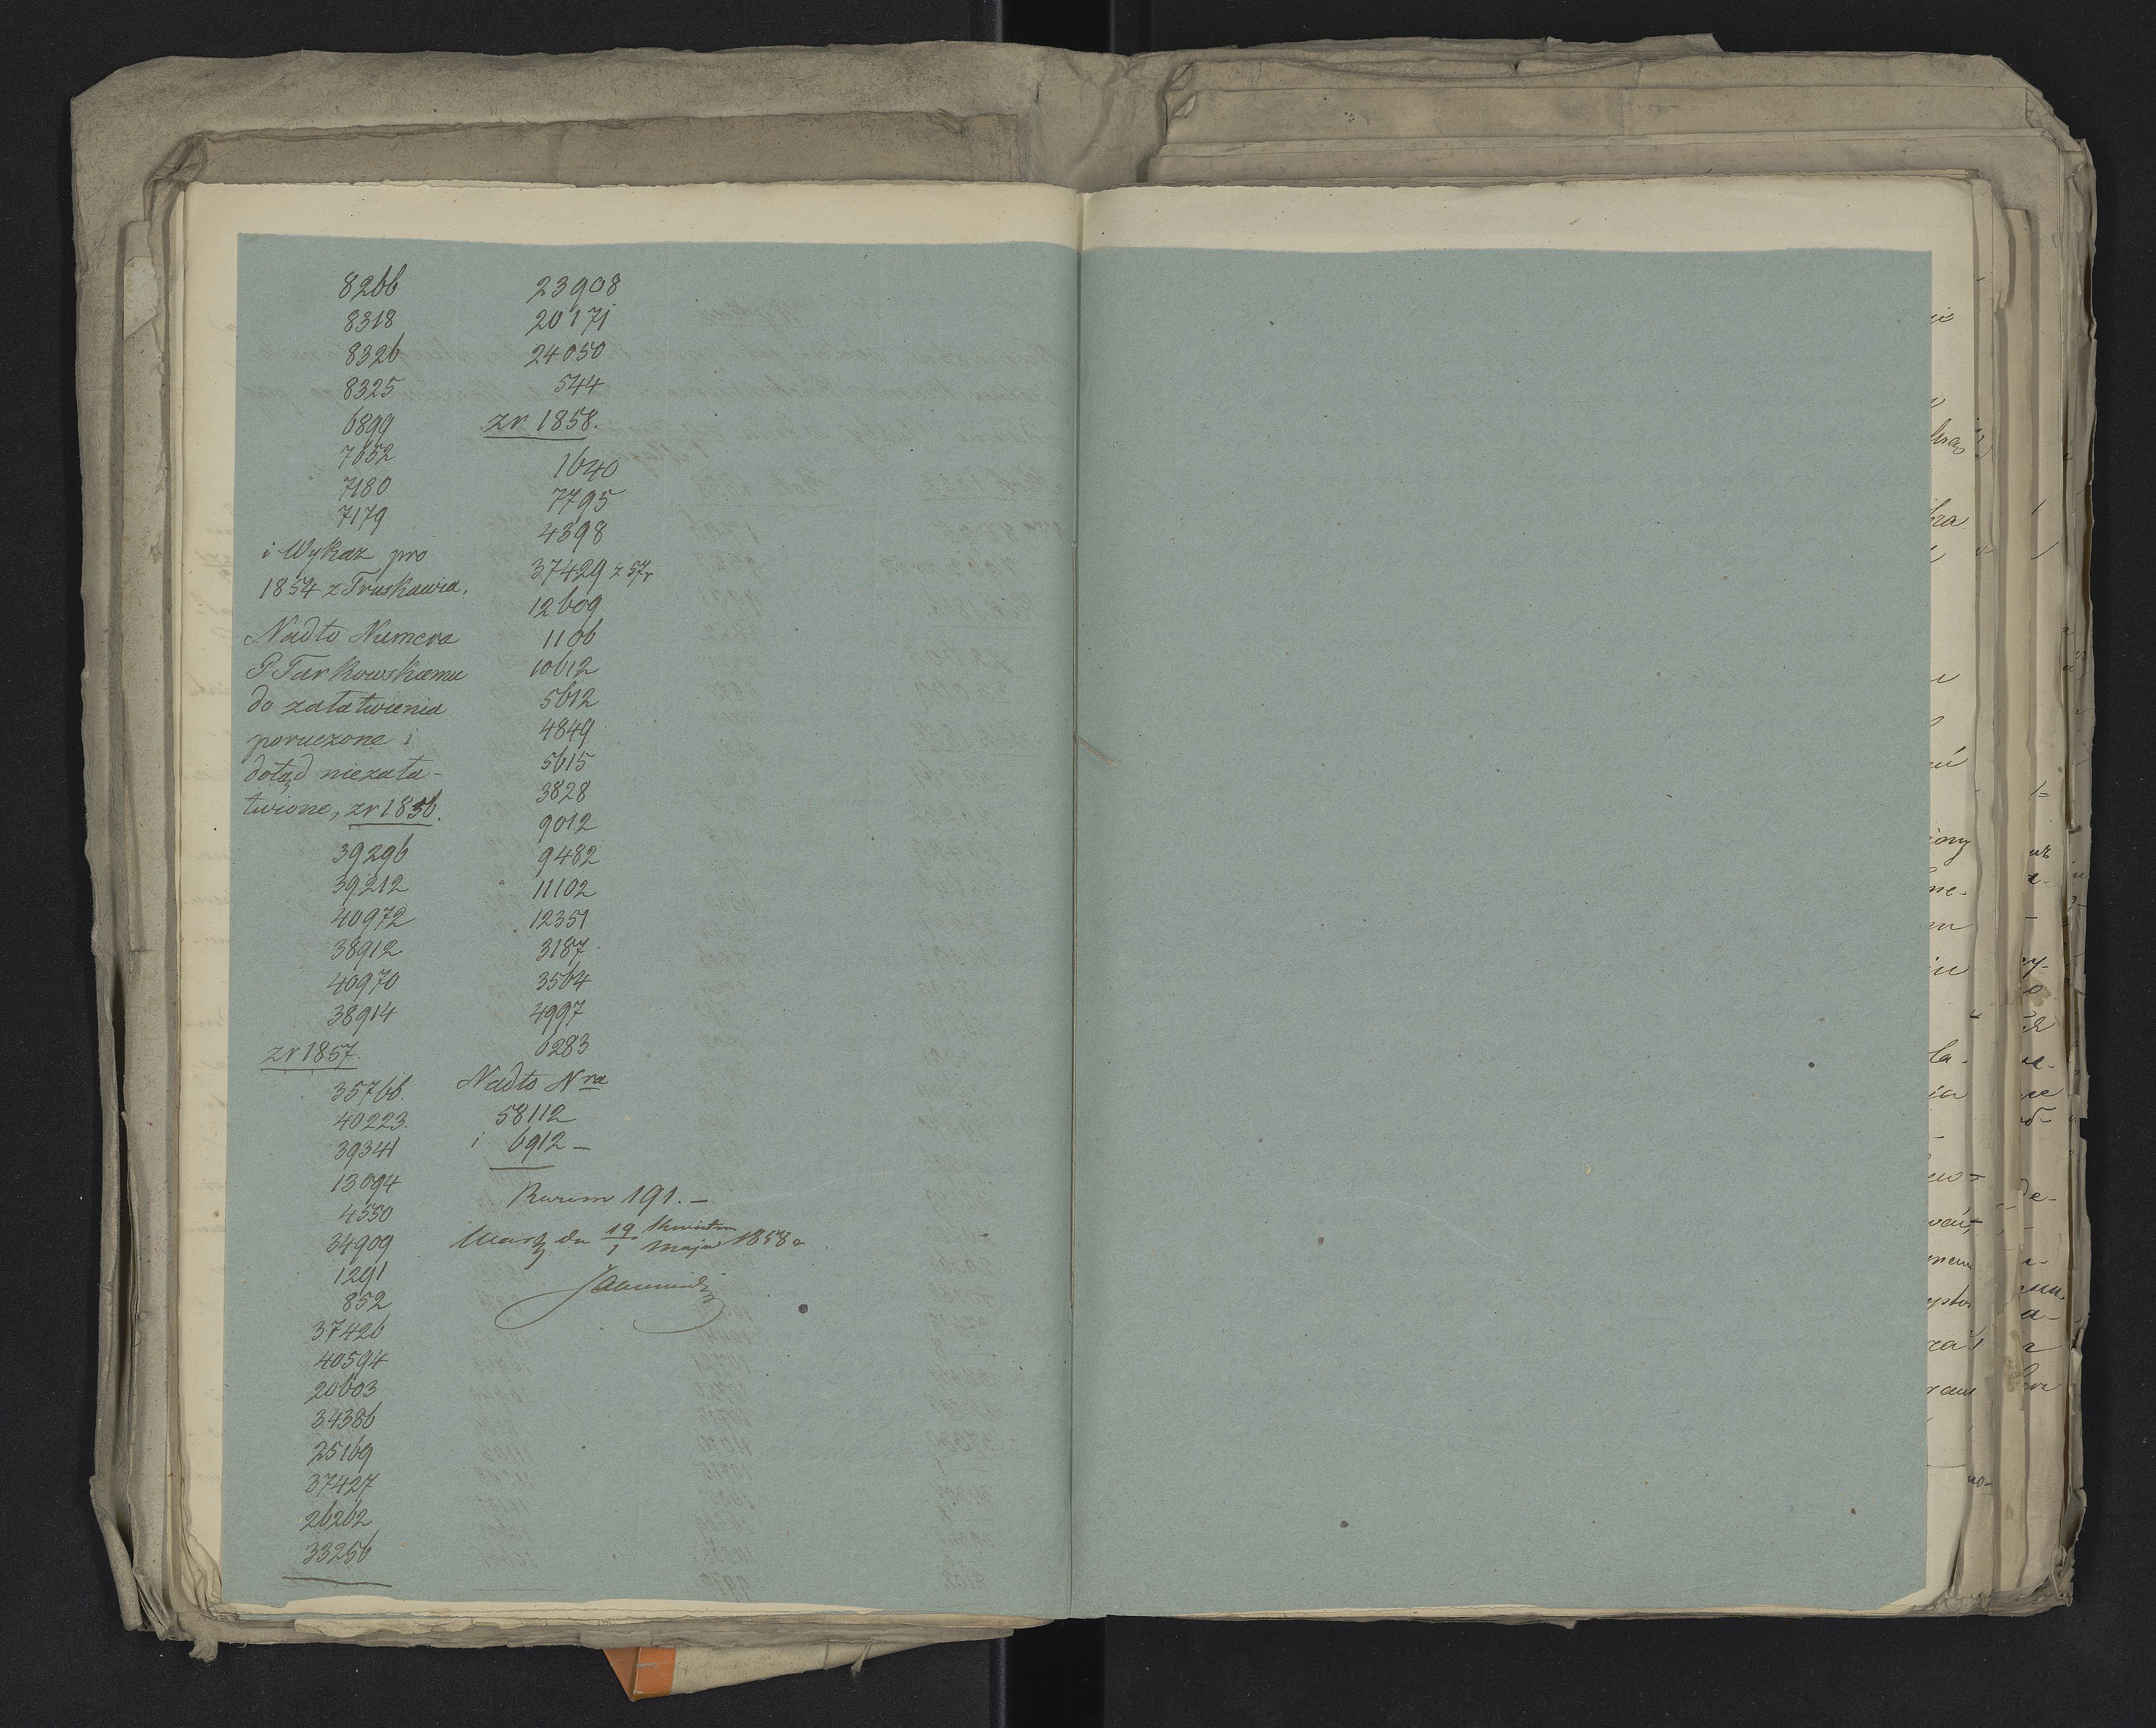 8266
8318
8326
8325
6899
7652
7180
7179
i Wykaz pro
1854 z Truskawia.
Nadto Numera
P Turkowskiemu
do załatwienia
poruczone i
dotąd niezała-
twione, zr 1856.
39296
39212
40972
38912
40970
38914
zr 1857.
35766.
40223.
39341
13094
4550
34909
1291
852
37426
40594
20603
34386
25169
37427
26262
33256
23908
20171
24050
544
zr 1858.
1640
7795
4398
37429 z 57r
12609
1106
10612
5612
4849
5615
3828
9012
9482
11102
12351
3187
3564
4997
6283
Nadto Nra
58112
i 6912 –
Razem 191. –
Warsz dn 19 Kwietn / 1 Maja 1858 r